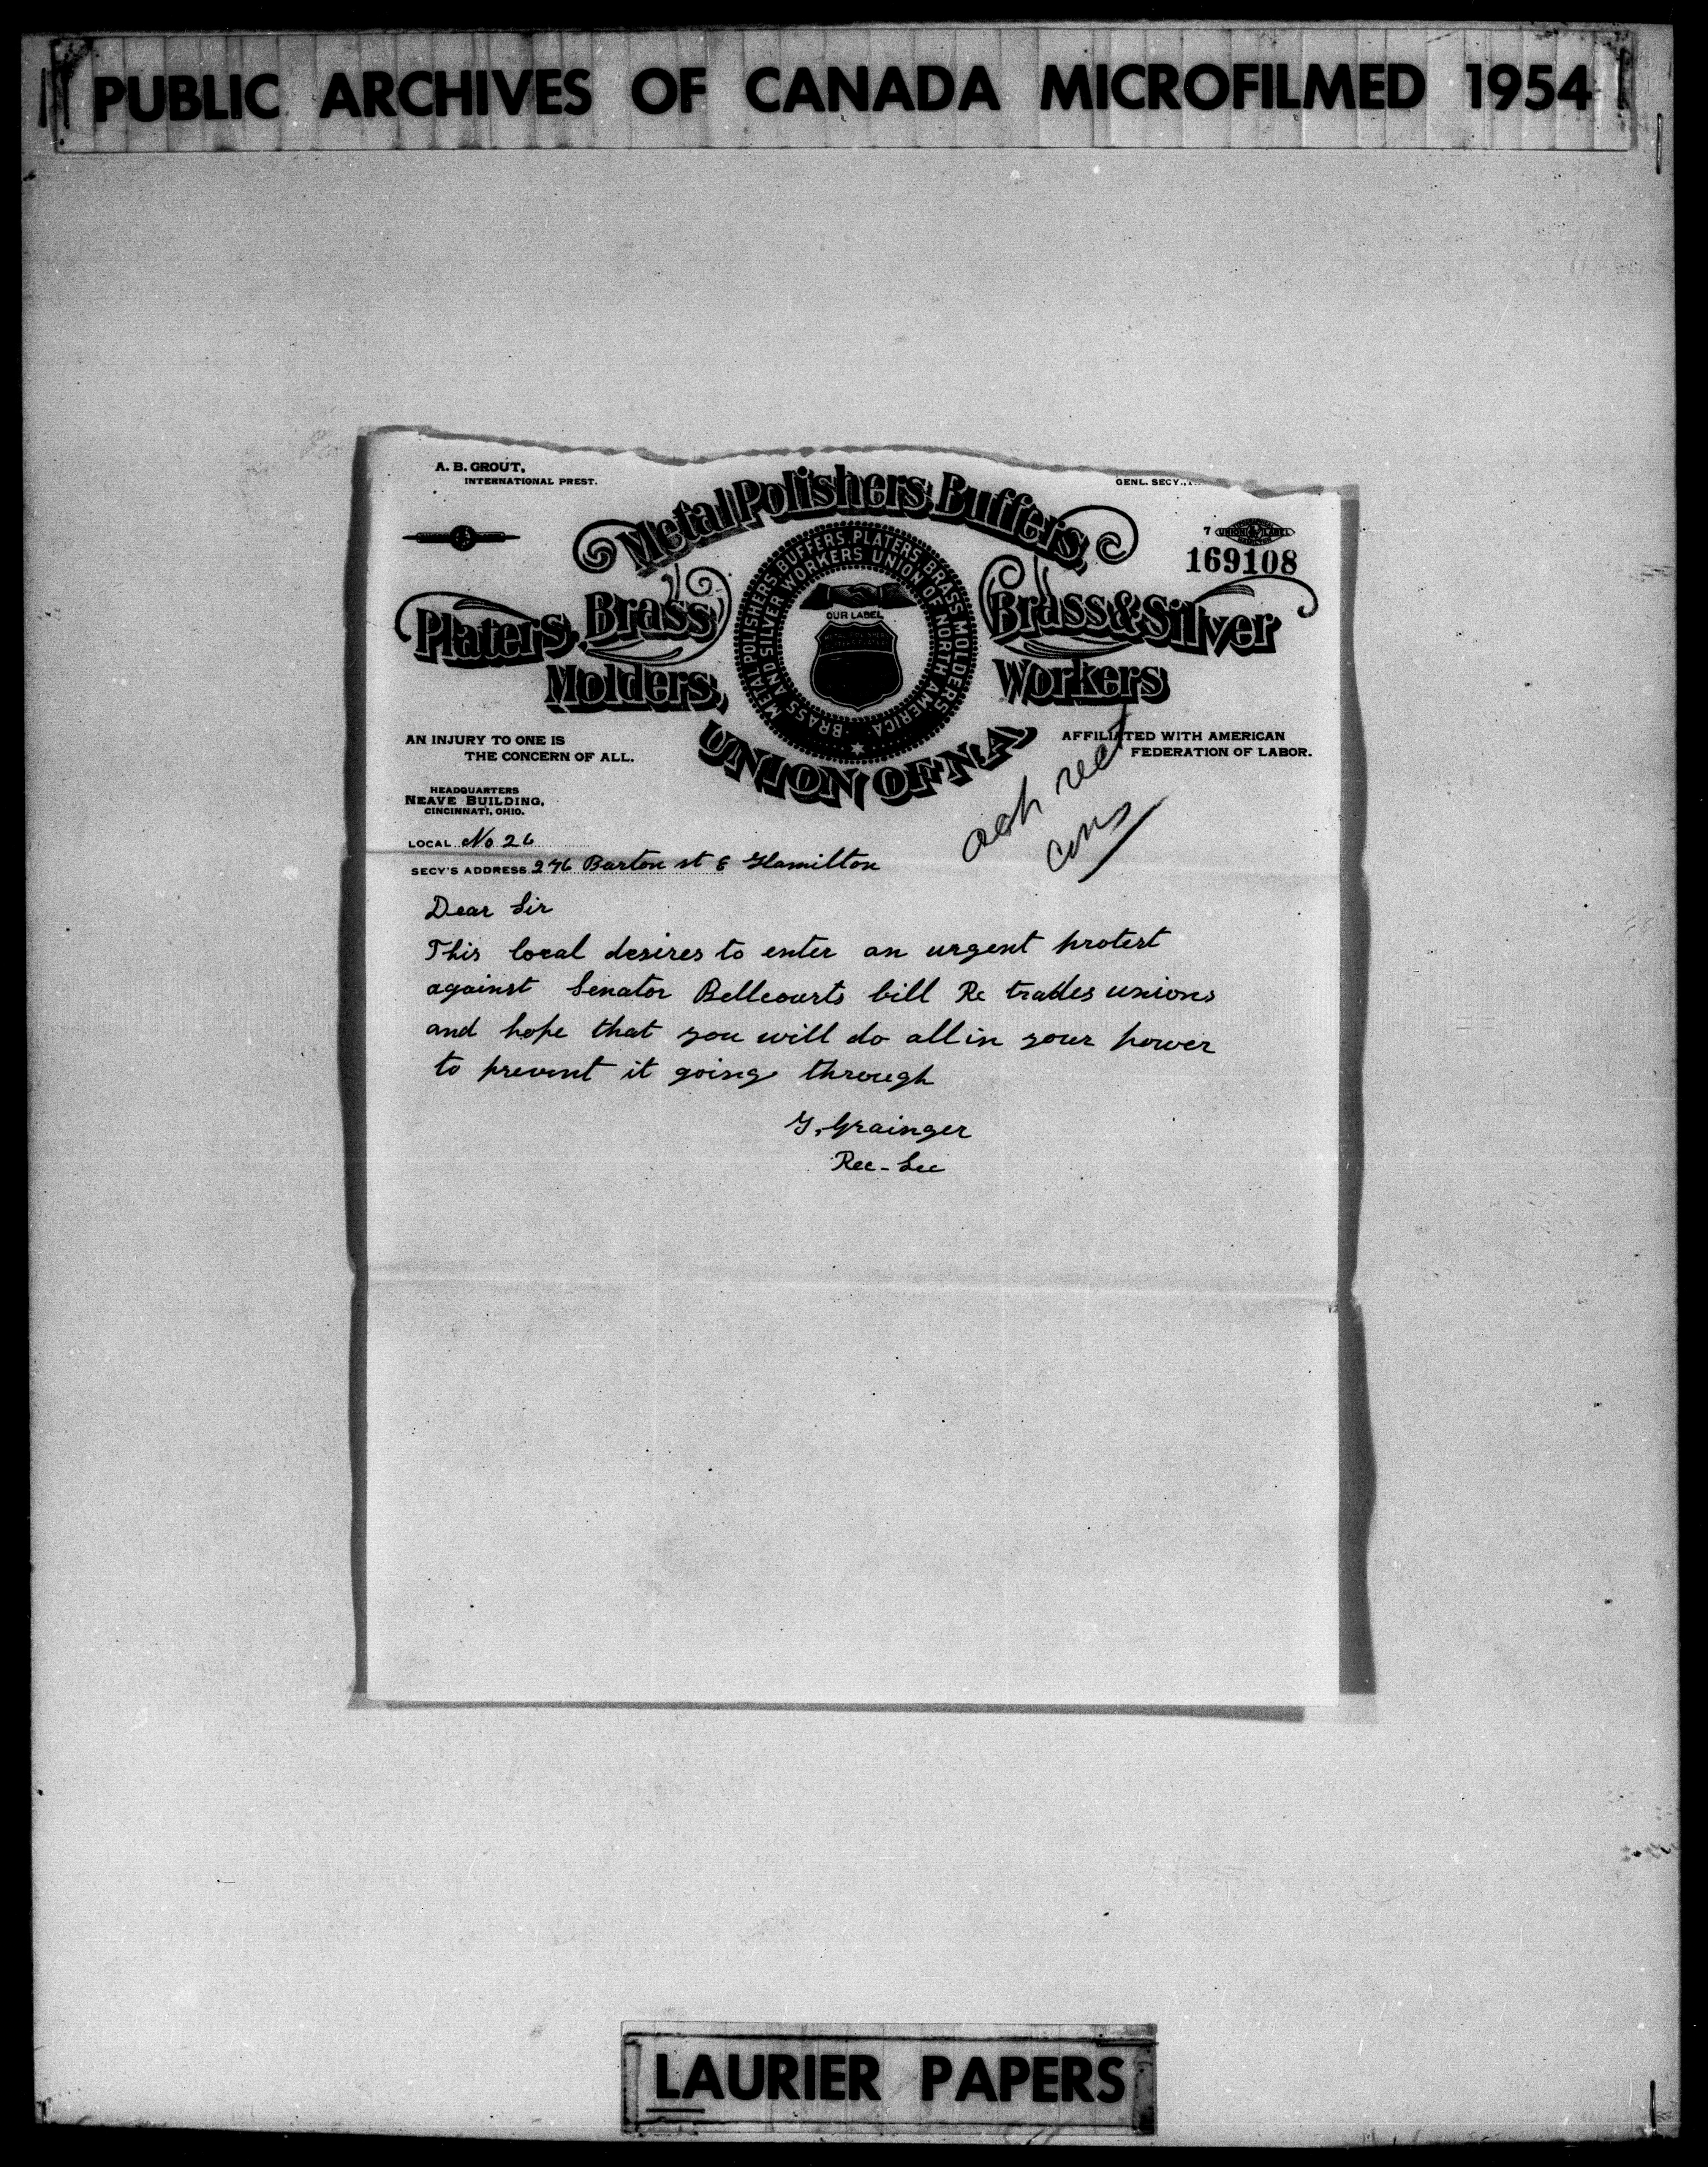 PUBLIC ARCHIVES OF CANADA MICROFILMED 1954
A. B. GROUT,
INTERNATIONAL PREST.
GENL. SECY.
Metal Polishers, Buffers,
7 UNION LABEL
169108
Platers, Brass
Molders,
Brass & Silver
Workers
UNION OF N.A.
METAL POLISHERS, BUFFERS, PLATERS, BRASS MOLDERS
BRASS AND SILVER WORKERS UNION OF NORTH AMERICA
OUR LABEL
AN INJURY TO ONE IS
THE CONCERN OF ALL.
AFFILIATED WITH AMERICAN
FEDERATION OF LABOR.
HEADQUARTERS
NEAVE BUILDING,
CINCINNATI, OHIO.
ack rect
LOCAL No 26
SECY'S ADDRESS 276 Barton st E Hamilton
Dear Sir
This local desires to enter an urgent protest
against Senator Bellcourts bill Re trades unions
and hope that you will do all in your power
to prevent it going through
G. Grainger
Rec-Sec
LAURIER PAPERS